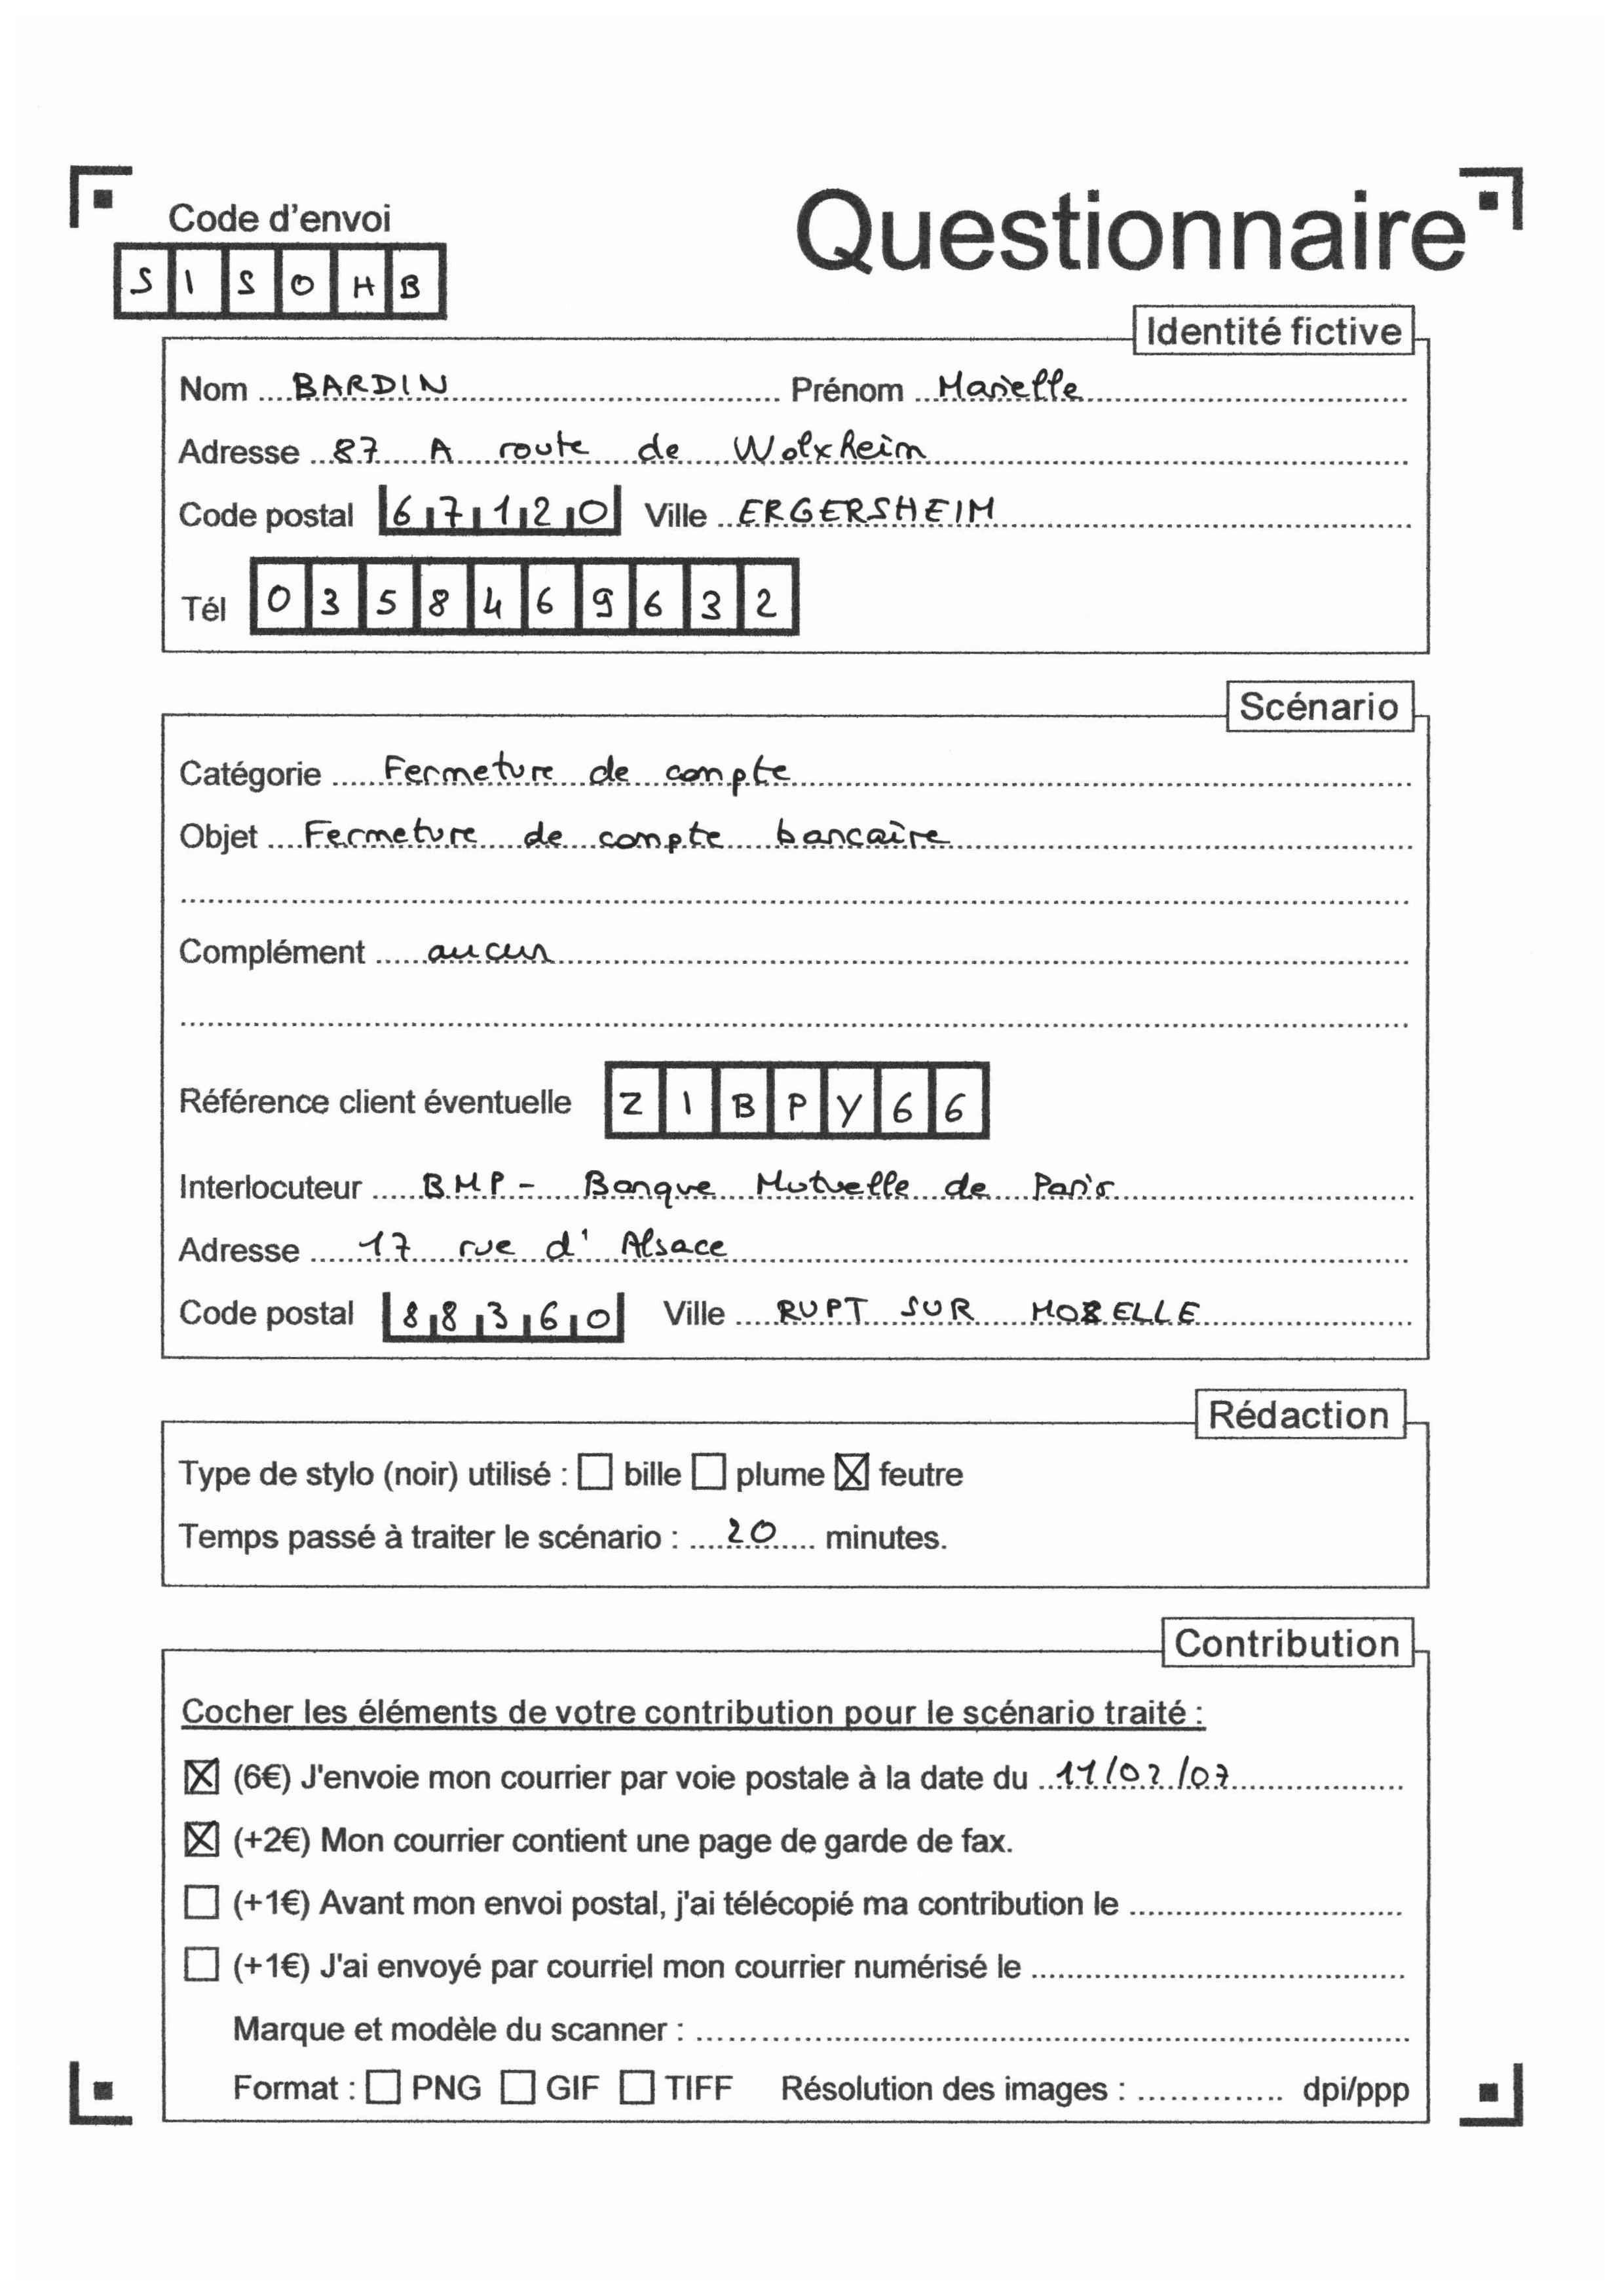 Code d'envoi
Questionnaire
S I S O H B
Identité fictive
Nom BARDIN Prénom Marielle
Adresse 87 A route de Wolxheim
Code postal 67120 Ville ERGERSHEIM
Tél 0358469632
Scénario
Catégorie Fermeture de compte
Objet Fermeture de compte bancaire
Complément aucun
Référence client éventuelle Z I B P Y 6 6
Interlocuteur BMP - Banque Mutuelle de Paris
Adresse 17 rue d'Alsace
Code postal 88360 Ville RUPT SUR MOSELLE
Rédaction
Type de stylo (noir) utilisé : ☐ bille ☐ plume ☒ feutre
Temps passé à traiter le scénario : 20 minutes.
Contribution
Cocher les éléments de votre contribution pour le scénario traité :
☒ (6€) J'envoie mon courrier par voie postale à la date du 11/07/07
☒ (+2€) Mon courrier contient une page de garde de fax.
☐ (+1€) Avant mon envoi postal, j'ai télécopié ma contribution le
☐ (+1€) J'ai envoyé par courriel mon courrier numérisé le
Marque et modèle du scanner :
Format : ☐ PNG ☐ GIF ☐ TIFF Résolution des images : dpi/ppp